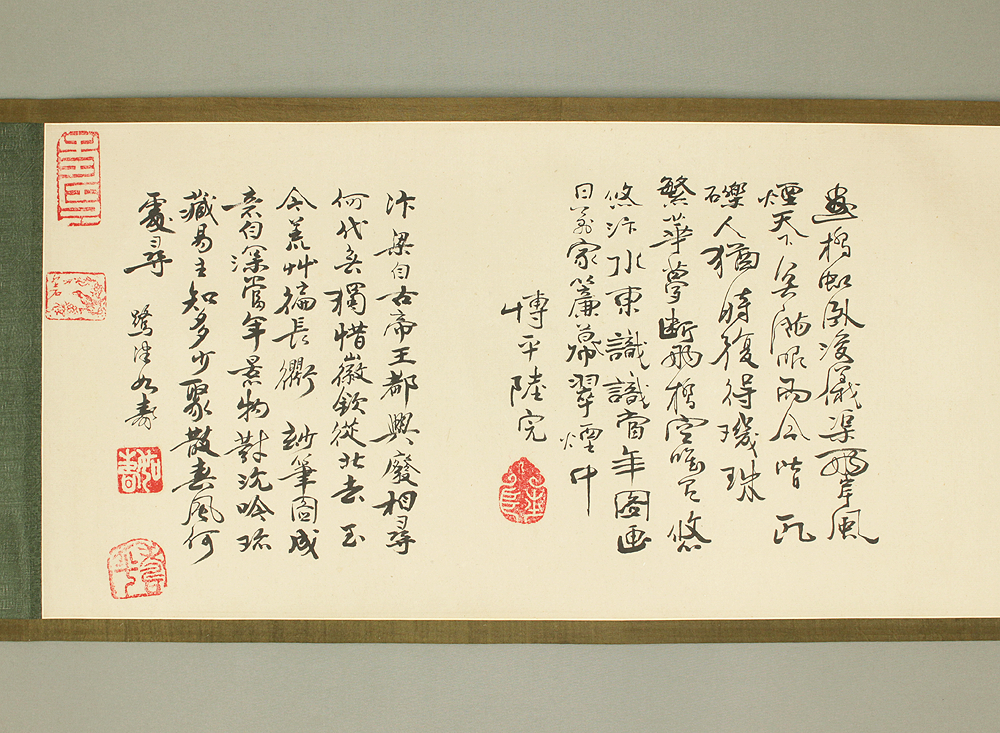 畫橋虹臥浚儀渠兩岸風
煙天下無滿眼而今皆瓦
礫人猶時復得璣珠
繁華夢斷兩橋空唯有悠
悠汴水東識識當年圖画
日萬家簾幕翠煙中
博平陸完
汴梁自古帝王都興廢相尋
何代無獨惜徽欽從北去至
今荒艸徧長衢 妙筆圖成
意自深當年景物對沈吟珎
藏易主知多少聚散春風何
處尋
鷺津如壽